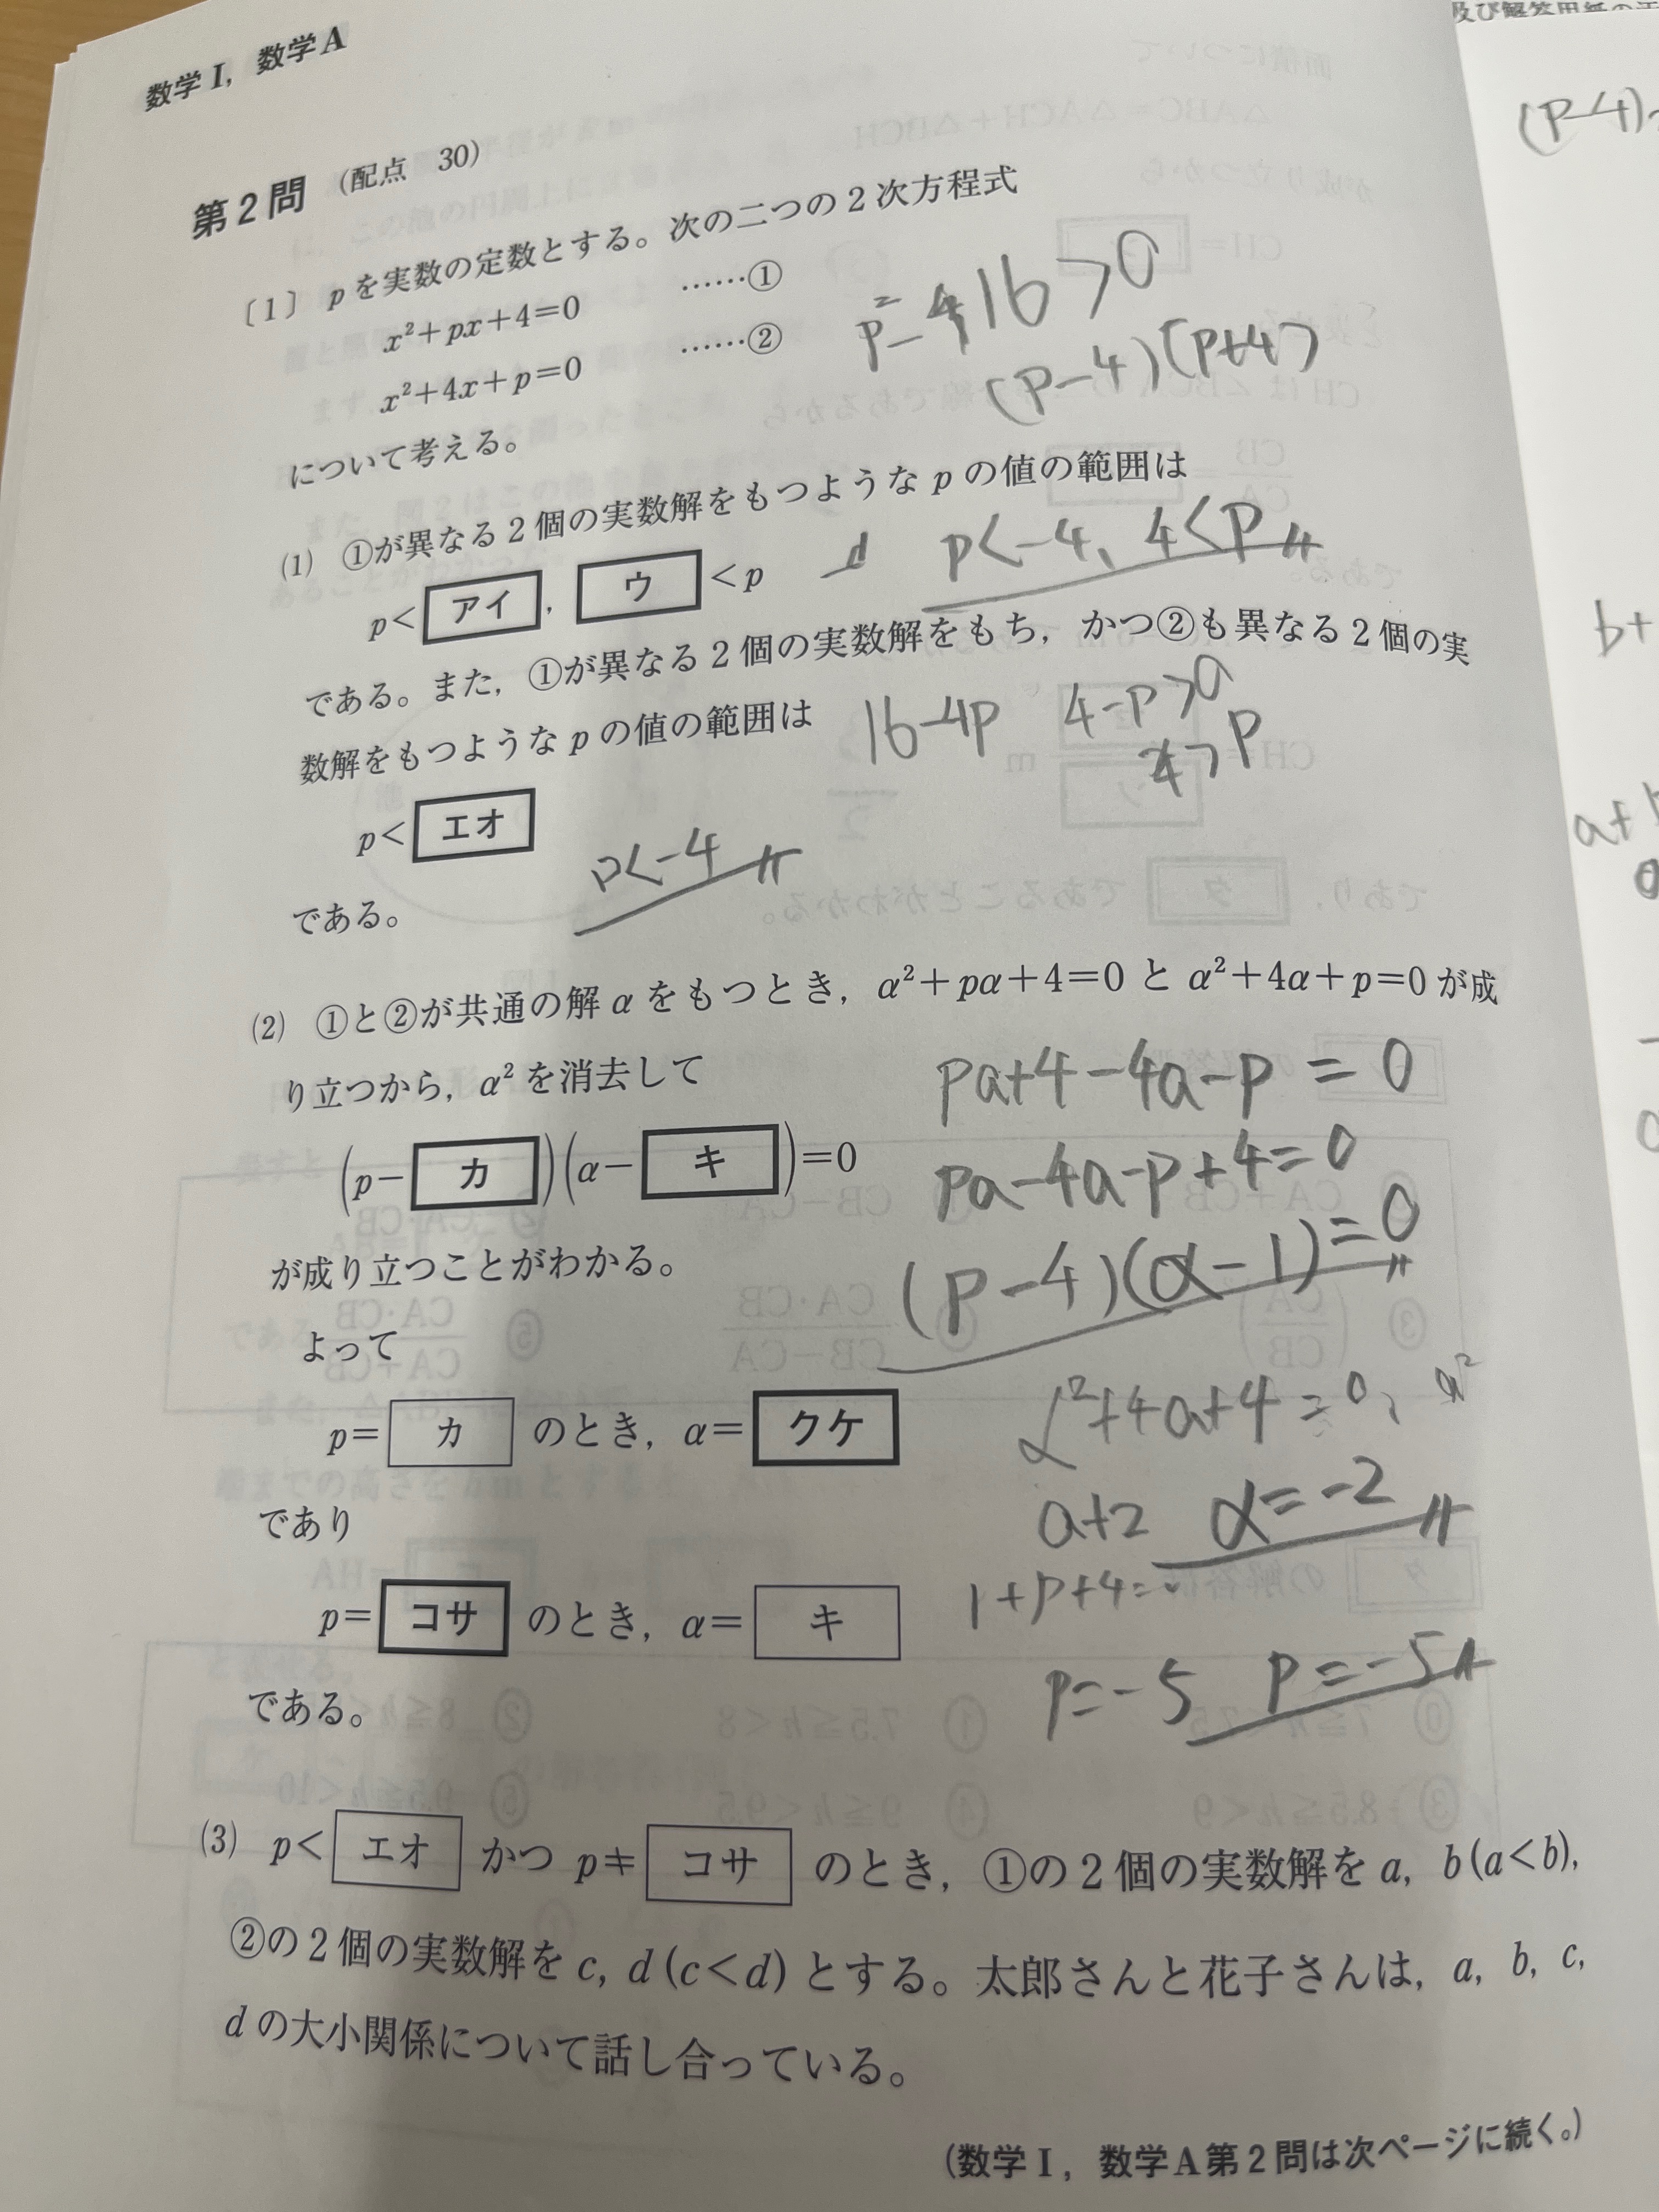 数学Ⅰ，数学A
第2問 （配点 30）
〔1〕 pを実数の定数とする。次の二つの2次方程式
x²+px+4=0 ……①
x²+4x+p=0 ……②
p²-4・16>0
(p-4)(p+4)
について考える。
(1) ①が異なる2個の実数解をもつようなpの値の範囲は
p< アイ ， ウ <p
p<-4、4<p
である。また，①が異なる2個の実数解をもち，かつ②も異なる2個の実
数解をもつようなpの値の範囲は
16-4p 4-p>0
4>p
p< エオ
p<-4
である。
(2) ①と②が共通の解αをもつとき，α²+pα+4=0とα²+4α+p=0が成
り立つから，α²を消去して
pa+4-4a-p=0
(p- カ )(α- キ )=0
pa-4a-p+4=0
が成り立つことがわかる。
(p-4)(α-1)=0
よって
α²+4a+4=0、a²
p= カ のとき，α= クケ
a+2 α=-2
であり
1+p+4=0
p= コサ のとき，α= キ
p=-5 p=-5
である。
(3) p< エオ かつ p≠ コサ のとき，①の2個の実数解をa，b(a<b)，
②の2個の実数解をc，d(c<d)とする。太郎さんと花子さんは，a，b，c，
dの大小関係について話し合っている。
（数学Ⅰ，数学A第2問は次ページに続く。）
(p-4)
b+